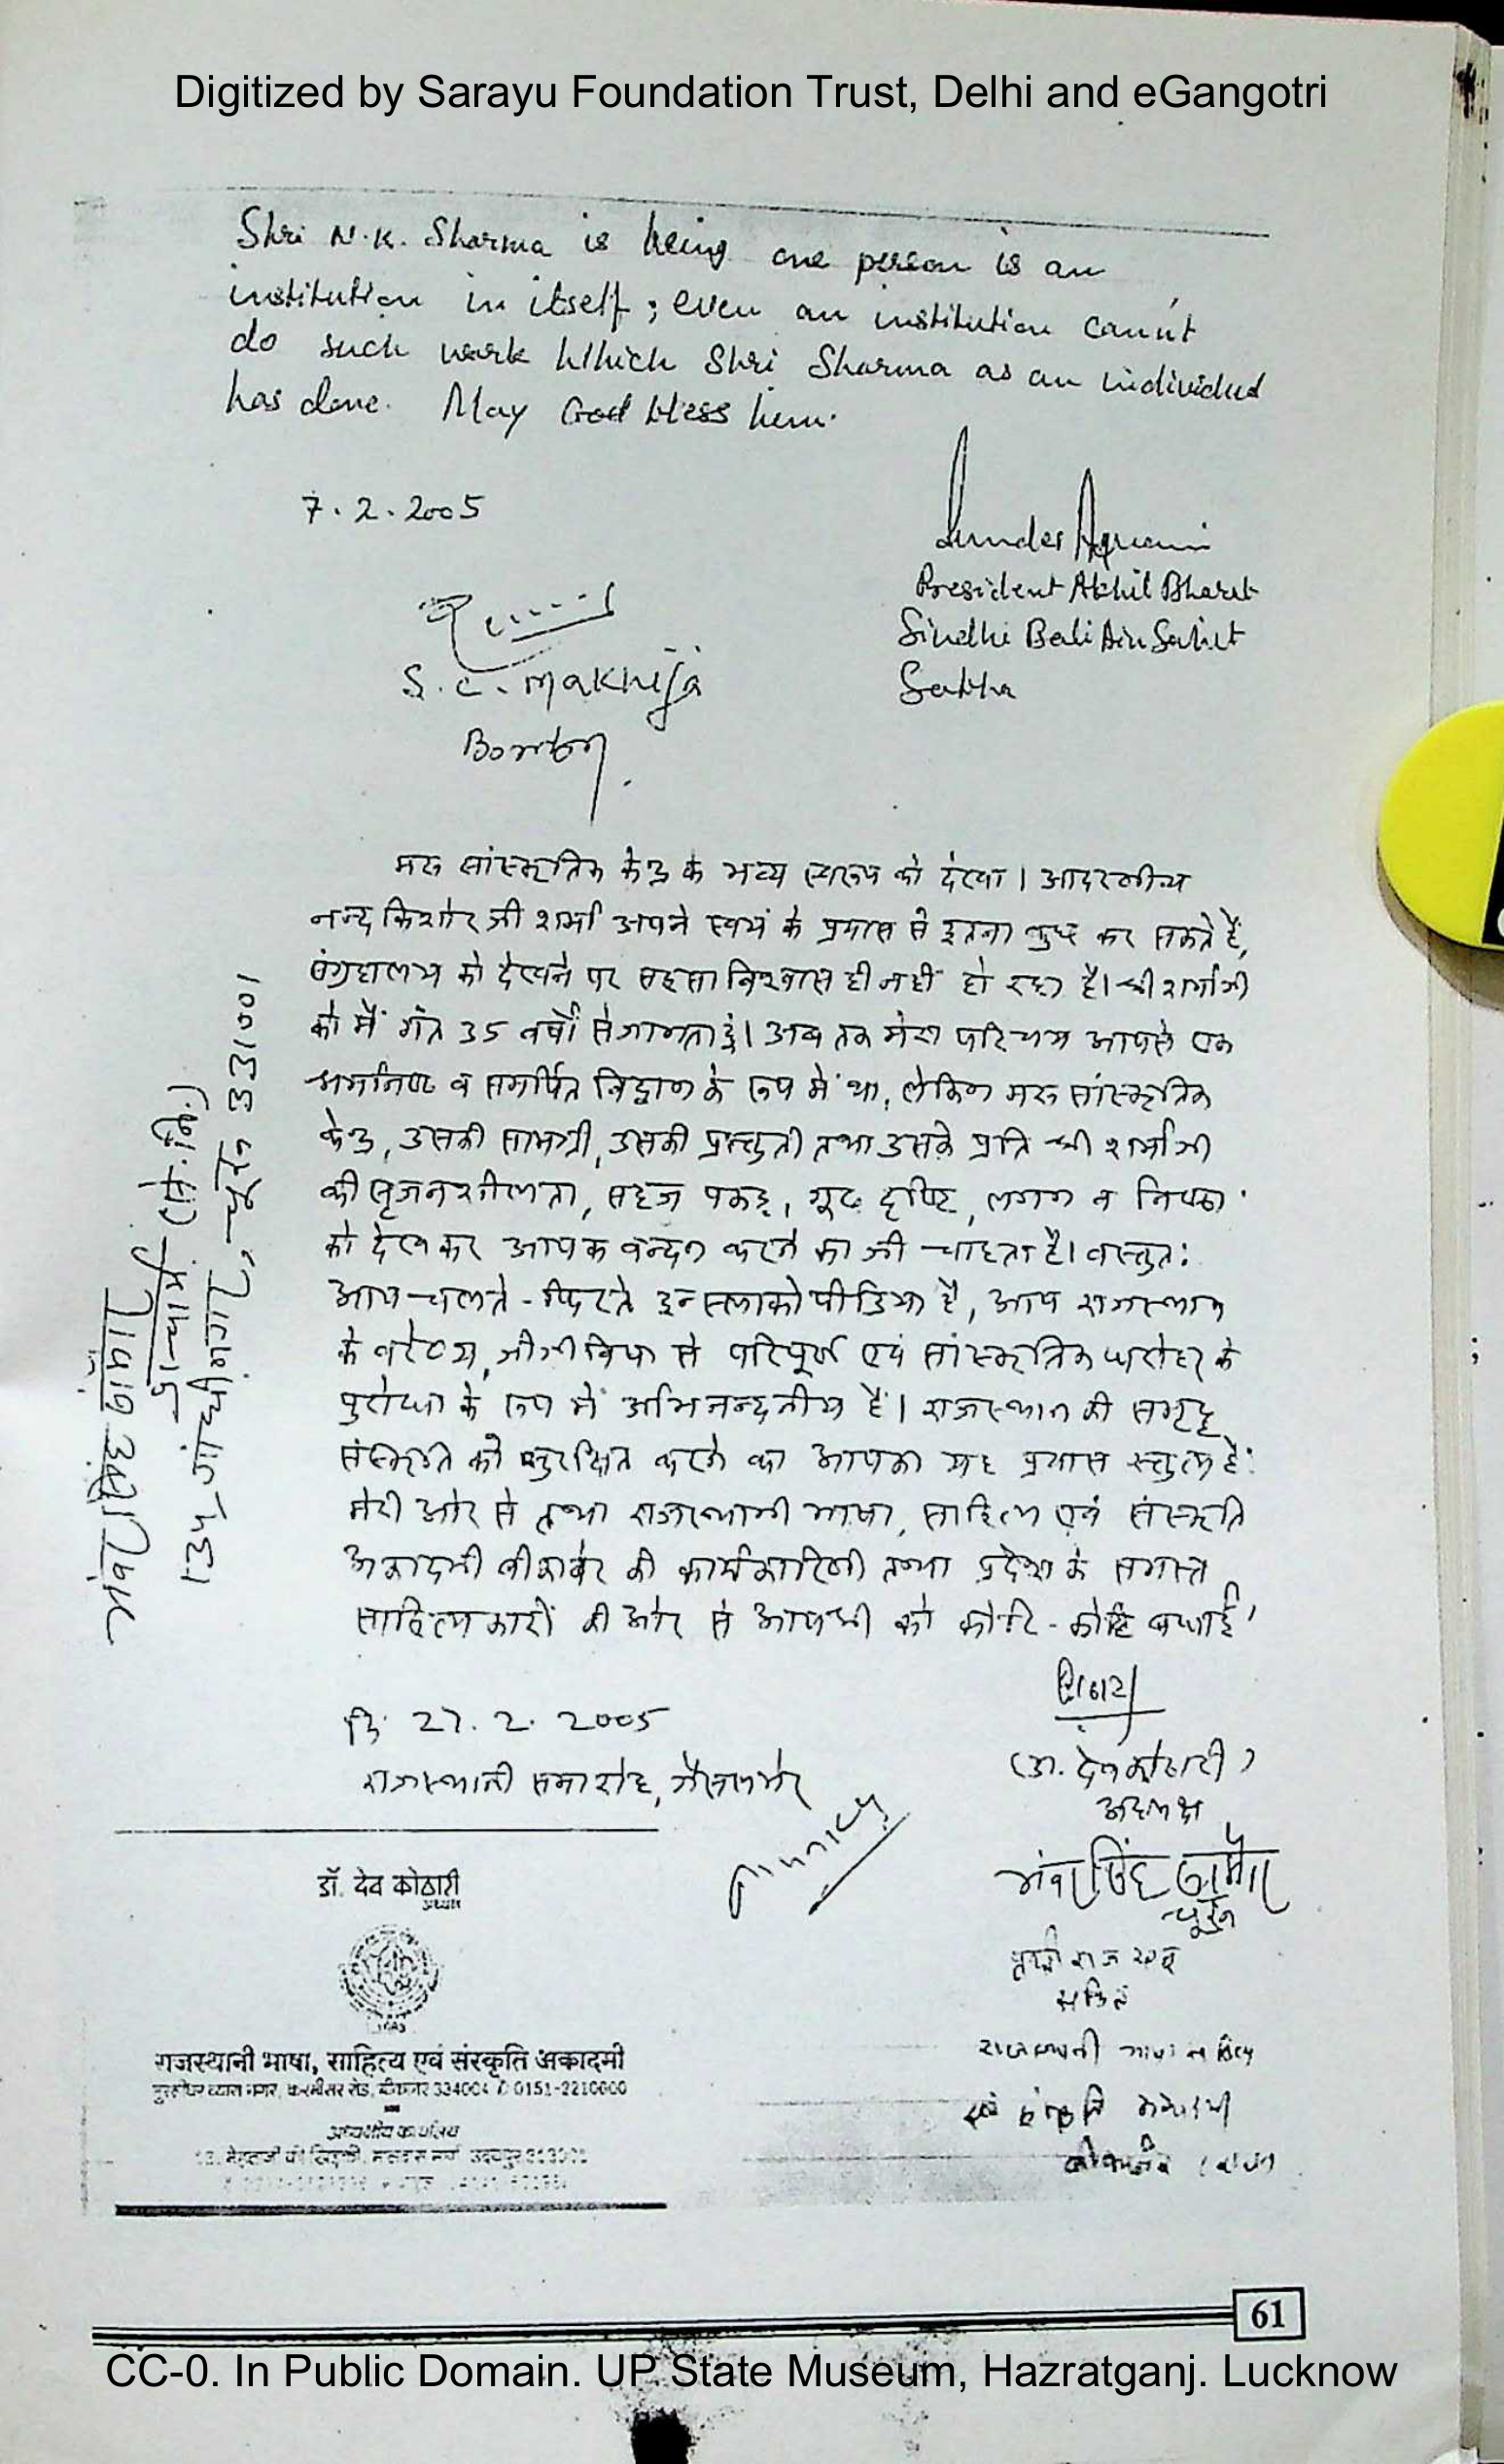 Digitized by Sarayu Foundation Trust, Delhi and eGangotri
Shri N.K. Sharma is being one person is an
institution in itself ; even an institution cann't
do such work which Shri Sharma as an individual
has done. May God bless him.
7.2.2005
President Akhil Bharat
Sindhi Boli Ain Sahit
Sabha
S.C. Makhija
Bombay
मरु सांस्कृतिक केन्द्र के भव्य स्वरूप को देखा। आदरणीय
नन्दकिशोर जी शर्मा अपने स्वयं के प्रयास से इतना कुछ कर सकते हैं,
संग्रहालय को देखने पर सहसा विश्वास ही नहीं हो रहा है। श्री शर्माजी
को मैं गत 35 वर्षों से जानता हूं। अब तक मेरा परिचय आपसे एक
श्रमनिष्ठ व समर्पित विद्वान के रूप में था, लेकिन मरु सांस्कृतिक
केन्द्र, उसकी सामग्री, उसकी प्रस्तुती तथा उसके प्रति श्री शर्माजी
की सृजनशीलता, सहज पकड़, गूढ़ दृष्टि, लगन व निष्ठा
को देखकर आपक वन्दन करने का जी चाहता है। वस्तुत:
आप चलते-फिरते इन्स्लाकोपीडिया है, आप राजस्थान
के वरेण्य, जीजीविषा से परिपूर्ण एवं सांस्कृतिक धरोहर के
पुरोधा के रूप में अभिनन्दनीय हैं। राजस्थान की समृद्ध
संस्कृति को सुरक्षित करने का आपका यह प्रयास स्तुत्य है।
मेरी ओर से तथा राजस्थानी भाषा, साहित्य एवं संस्कृति
अकादमी बीकानेर की कार्यकारिणी तथा प्रदेश के समस्त
साहित्यकारों की ओर से आपश्री को कोटि-कोटि बधाई।
भंवरसिंह सामौर
प्राचार्य (से.नि.)
गांधीनगर, चूरू 331001
दि. 27.2.2005
राजस्थानी समारोह, जैसलमेर
(डा. देव कोठारी)
अध्यक्ष
भंवरसिंह सामौर
चूरू
पृथ्वीराज रतनू
सचिव
राजस्थानी भाषा साहित्य
एवं संस्कृति अकादमी
बीकानेर (राज)
डॉ. देव कोठारी
अध्यक्ष
राजस्थानी भाषा, साहित्य एवं संस्कृति अकादमी
मुरलीधर व्यास नगर, करमीसर रोड, बीकानेर 334004 0151-2210600
अध्यक्षीय कार्यालय
61
CC-0. In Public Domain. UP State Museum, Hazratganj. Lucknow